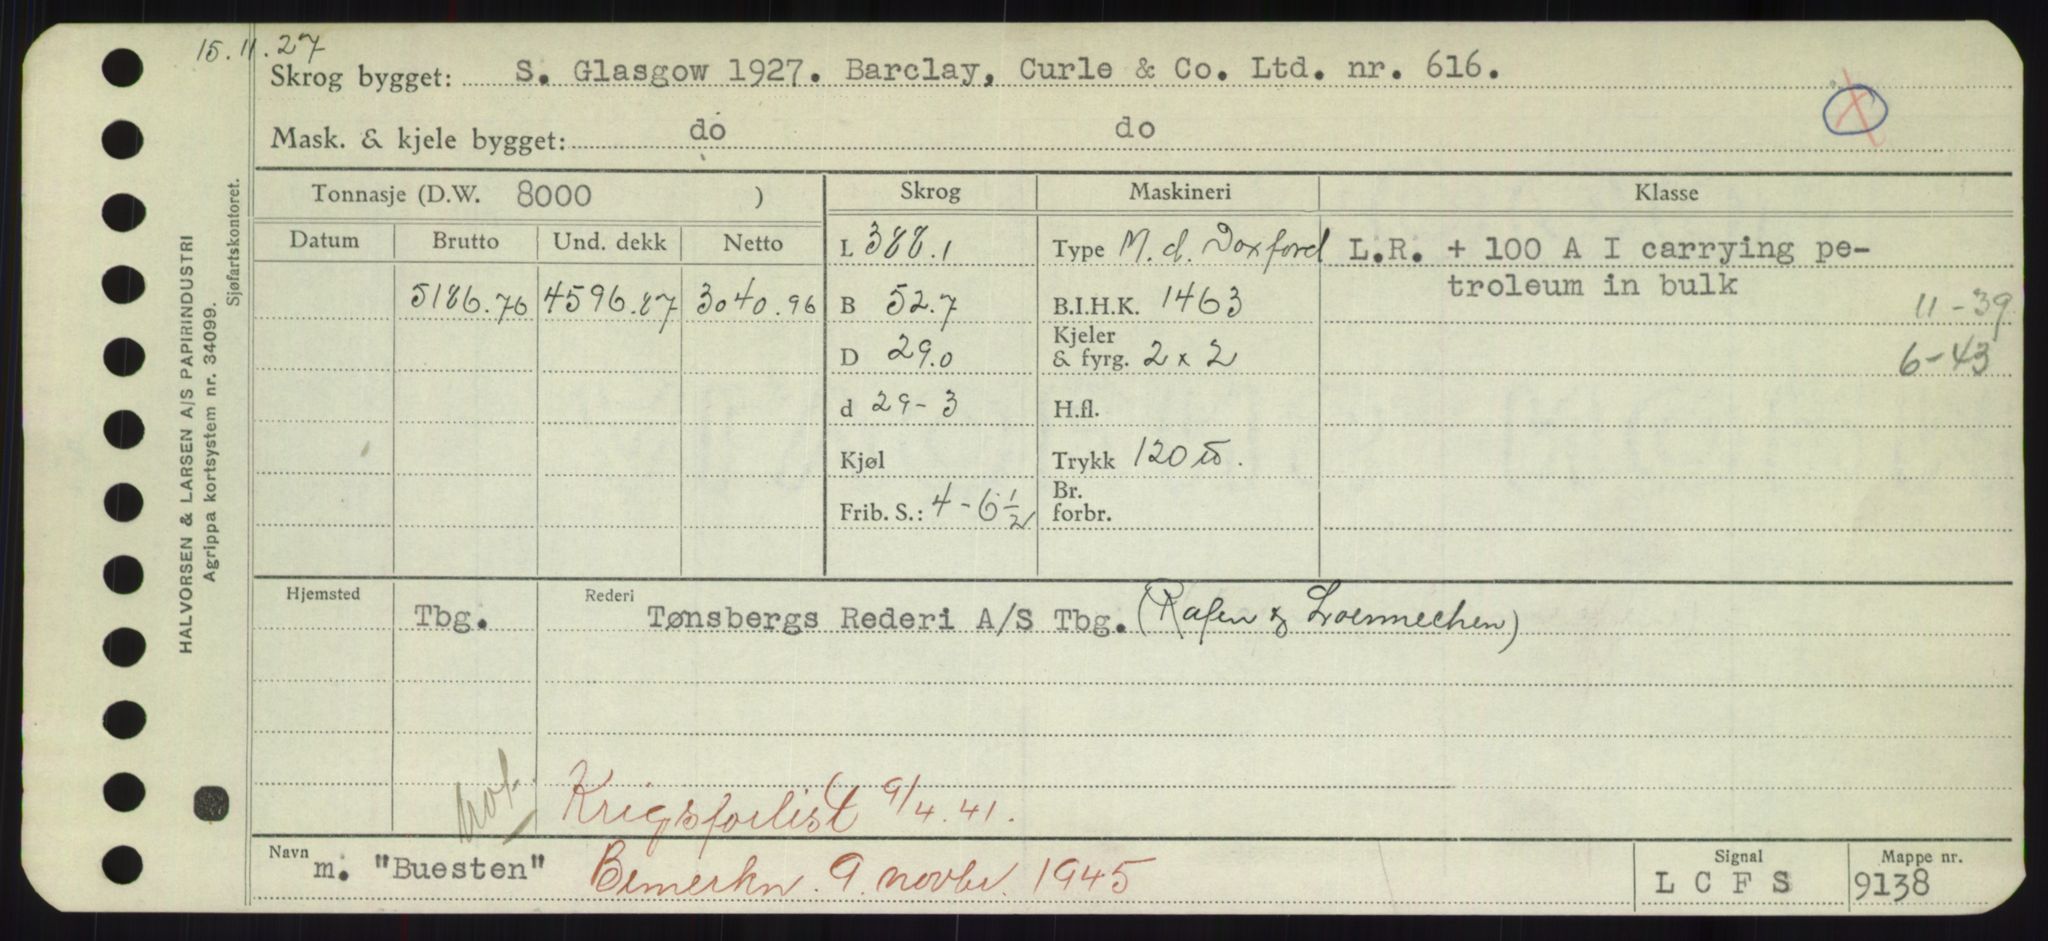 15.11.27
Skrog bygget: S. Glasgow 1927. Barclay, Curle & Co. Ltd. nr. 616.
Mask. & kjele bygget: do do
Tonnasje (D.W. 8000 ) Skrog Maskineri Klasse
Datum Brutto Und. dekk Netto
L 388.1 Type M. d. Doxford L.R. + 100 A I carrying pe-
troleum in bulk
5186.76 4596.87 3040.96 B 52.7 B.I.H.K. 1463 11-39
D 29.0 Kjeler & fyrg. 2 x 2 6-43
d 29-3 H.fl.
Kjøl Trykk 120 lb.
Frib. S.: 4-6 1/2 Br. forbr.
Hjemsted Rederi
Tbg. Tønsbergs Rederi A/S Tbg. (Rafen & Loennechen)
Krigsforlist 9/4.41.
Navn m. "Buesten" Bemerkn. 9. novbr. 1945
Signal L C F S
Mappe nr. 9138
HALVORSEN & LARSEN A/S PAPIRINDUSTRI
Agrippa kortsystem nr. 34099.
Sjøfartskontoret.